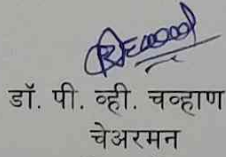 डॉ. पी. व्ही. चव्हाण
चेअरमन